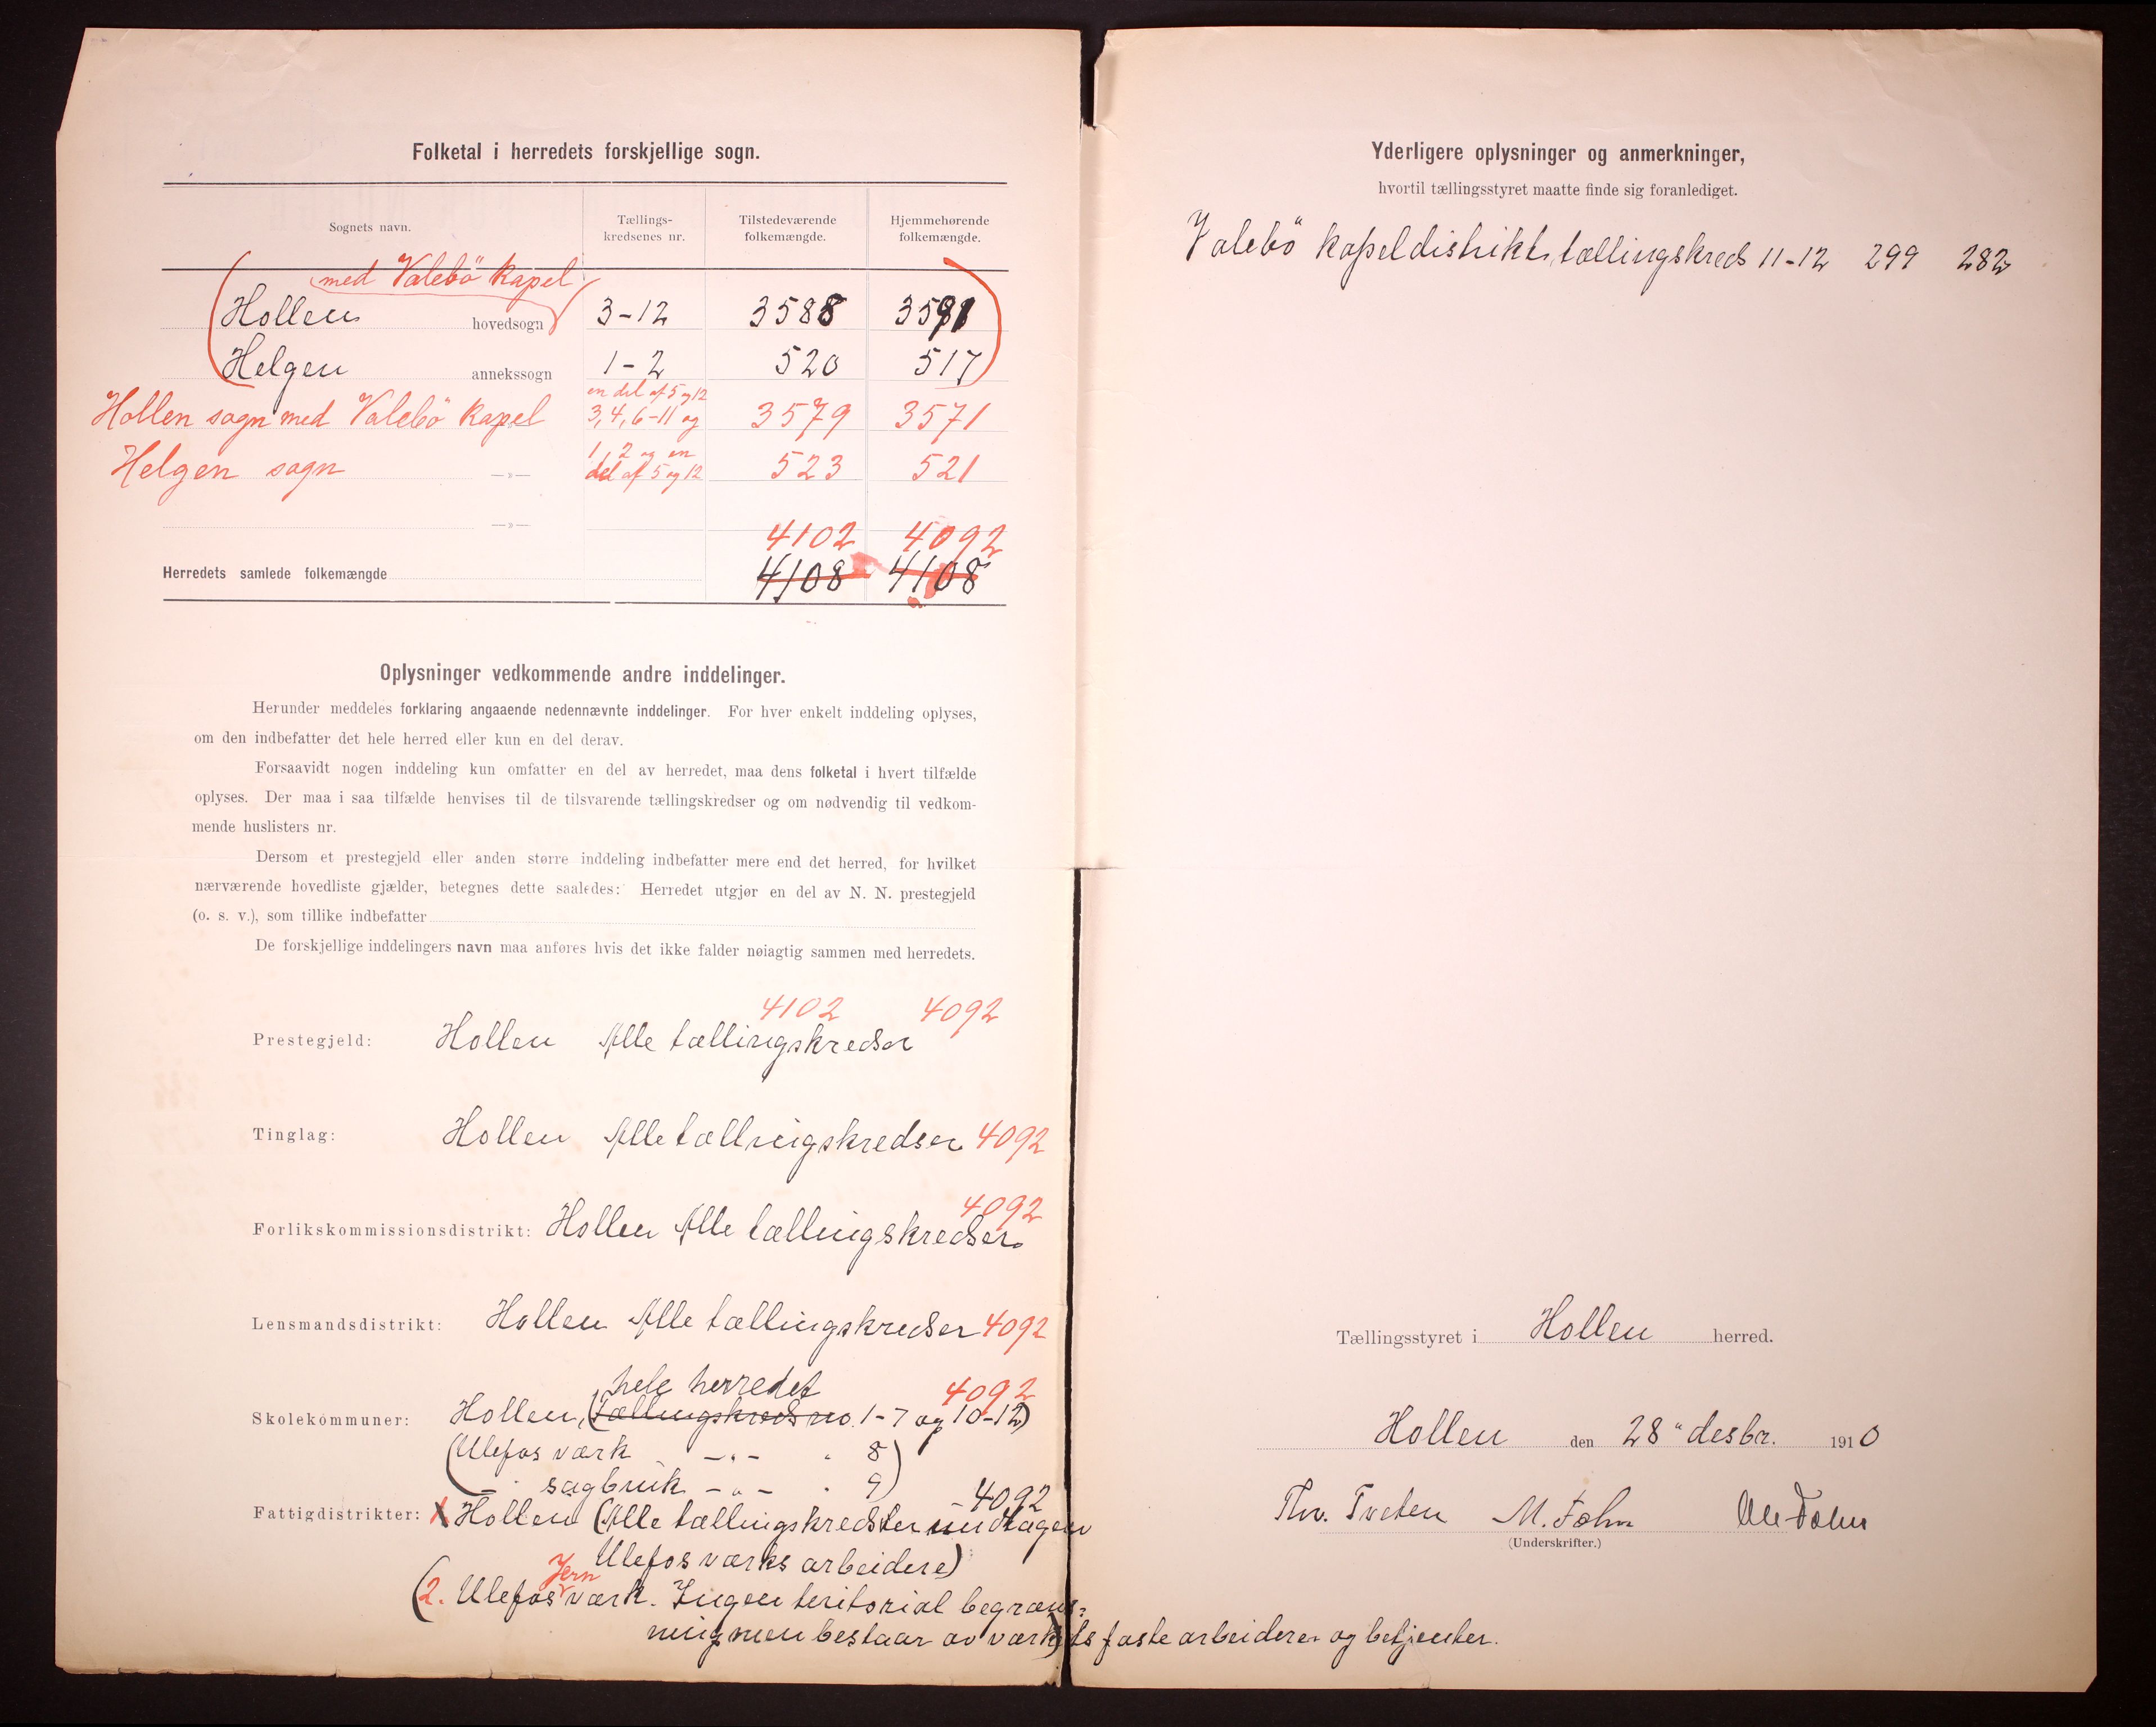 Folketal i herredets forskjellige sogn.
Sognets navn.
Tællings-
kredsenes nr.
Tilstedeværende
folkemængde.
Hjemmehørende
folkemængde.
med Valebö Kapel
Hollen hovedsogn 3-12 3588 3591
Helgen annekssogn 1-2 520 517
Hollen sogn med Valebö Kapel en del af 5 og 12
3, 4, 6-11 og 3579 3571
Helgen sogn —»— 1, 2 og en
del af 5 og 12 523 521
—»— 4102 4092
Herredets samlede folkemængde 4108 4108
Oplysninger vedkommende andre inddelinger.
Herunder meddeles forklaring angaaende nedennævnte inddelinger. For hver enkelt inddeling oplyses,
om den indbefatter det hele herred eller kun en del derav.
Forsaavidt nogen inddeling kun omfatter en del av herredet, maa dens folketal i hvert tilfælde
oplyses. Der maa i saa tilfælde henvises til de tilsvarende tællingskredser og om nødvendig til vedkom-
mende huslisters nr.
Dersom et prestegjeld eller anden større inddeling indbefatter mere end det herred, for hvilket
nærværende hovedliste gjælder, betegnes dette saaledes: Herredet utgjør en del av N. N. prestegjeld
(o. s. v.), som tillike indbefatter
De forskjellige inddelingers navn maa anføres hvis det ikke falder nøiagtig sammen med herredets.
4102 4092
Prestegjeld: Hollen Alle tællingskredser
Tinglag: Hollen Alle tællingskredser 4092
4092
Forlikskommissionsdistrikt: Hollen Alle tællingskredser.
Lensmandsdistrikt: Hollen Alle tællingskredser 4092
hele herredet 4092
Skolekommuner: Hollen, (Tællingskreds no. 1-7 og 10-12)
(Ulefos værk —„— „ 8)
— „ sagbruk —„— „ 9)
-4092
Fattigdistrikter: 1 Hollen (Alle tællingskredser undtagen
Ulefos værks arbeidere)
Jern
(2. Ulefos værk. Ingen teritorial begræns=
ning men bestaar av værkets faste arbeidere og betjenter.
Yderligere oplysninger og anmerkninger,
hvortil tællingsstyret maatte finde sig foranlediget.
Valebö kapeldistrikt, tællingskreds 11-12 299 282
Tællingsstyret i Hollen herred.
Hollen den 28" desbr. 1910
Thv. Tveten M. Folm Ole Folm
(Underskrifter.)